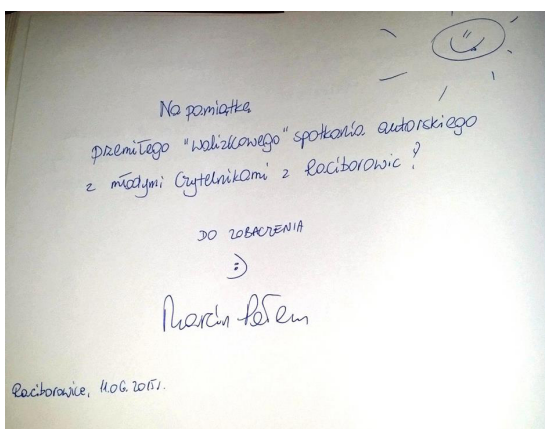 Na pamiątkę
przemiłego "walizkowego" spotkania autorskiego
z młodymi Czytelnikami z Raciborowic?
DO ZOBACZENIA
:)
Marcin Pałasz
Raciborowice, 11.06.2015r.